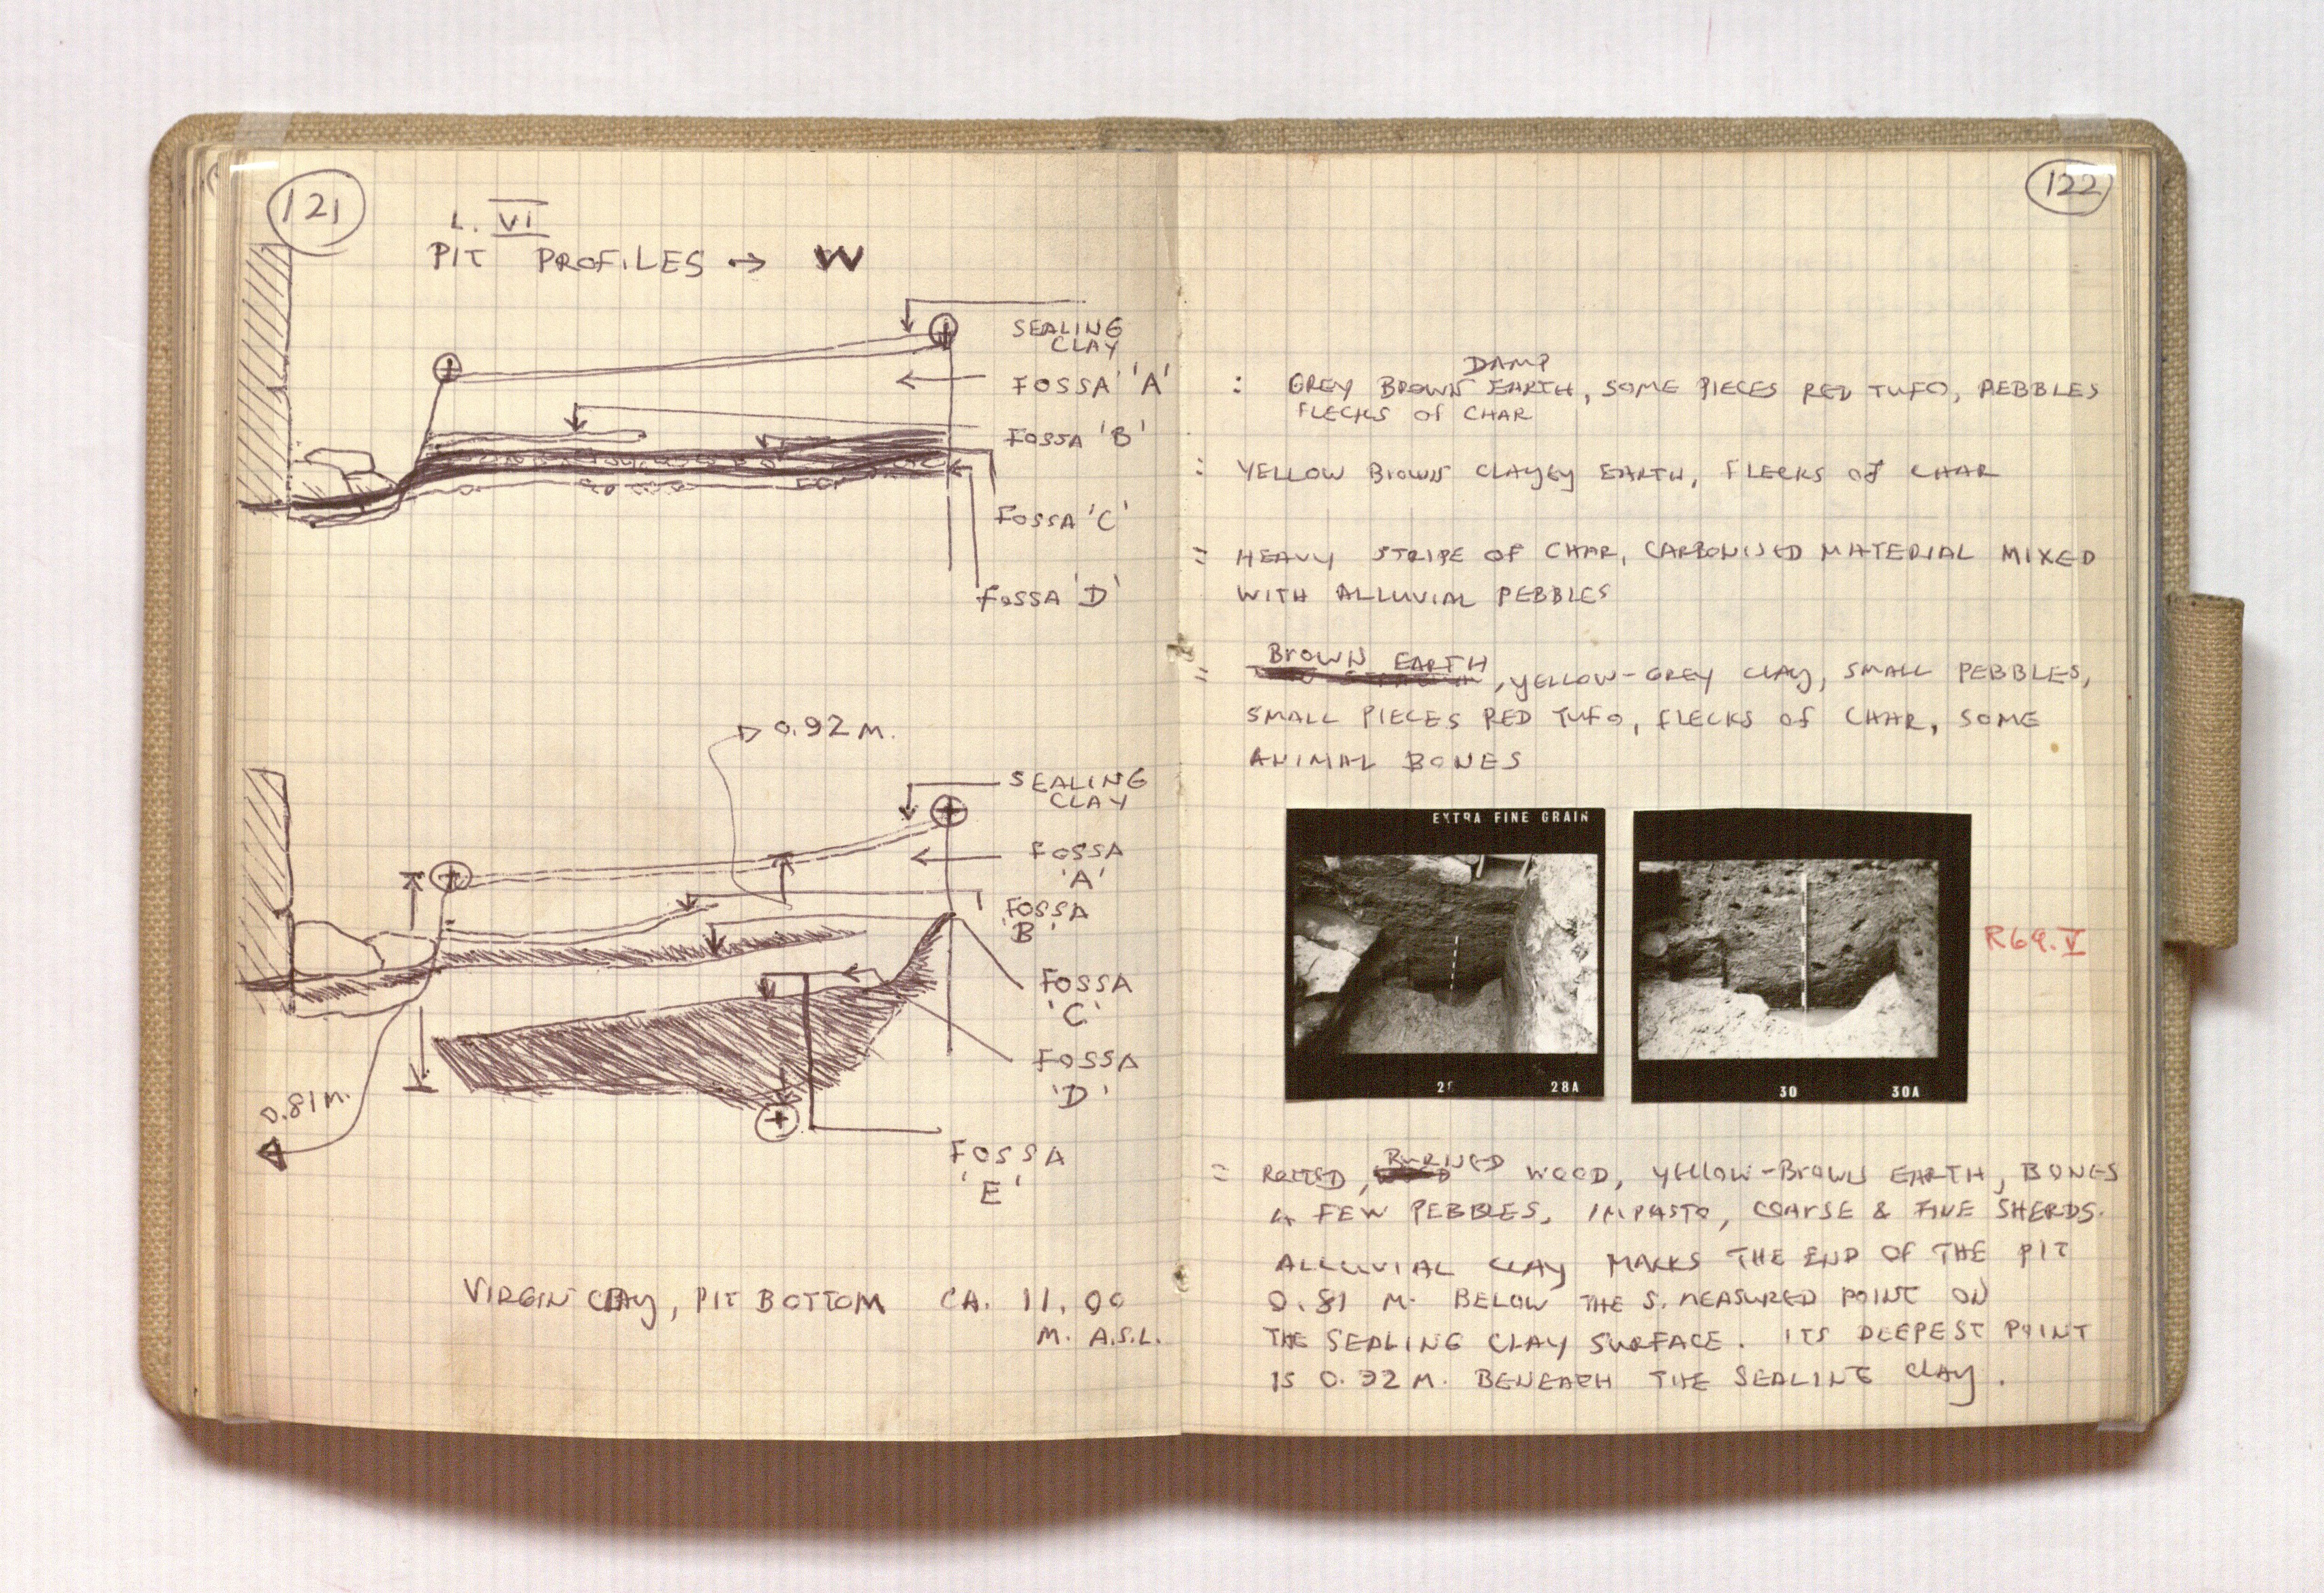 121
L. VI
PIT PROFILES → W
SEALING
CLAY
FOSSA 'A'
FOSSA 'B'
FOSSA 'C'
FOSSA 'D'
0.92 M.
SEALING
CLAY
FOSSA
'A'
FOSSA
'B'
FOSSA
'C'
FOSSA
'D'
0.81 M.
FOSSA
'E'
VIRGIN CLAY, PIT BOTTOM CA. 11.00
M. A.S.L.
122
DAMP
: GREY BROWN EARTH, SOME PIECES RED TUFO, PEBBLES
FLECKS OF CHAR
: YELLOW BROWN CLAYEY EARTH, FLECKS OF CHAR
= HEAVY STRIPE OF CHAR, CARBONISED MATERIAL MIXED
WITH ALLUVIAL PEBBLES
BROWN EARTH
= , YELLOW-GREY CLAY, SMALL PEBBLES,
SMALL PIECES RED TUFO, FLECKS OF CHAR, SOME
ANIMAL BONES
EXTRA FINE GRAIN
28A
30
30A
R69.V
BURNED
= ROTTED, WOOD, YELLOW-BROWN EARTH, BONES
A FEW PEBBLES, IMPASTO, COARSE & FINE SHERDS.
ALLUVIAL CLAY MARKS THE END OF THE PIT
0.81 M. BELOW THE S. MEASURED POINT ON
THE SEALING CLAY SURFACE. ITS DEEPEST POINT
IS 0.92 M. BENEATH THE SEALING CLAY.